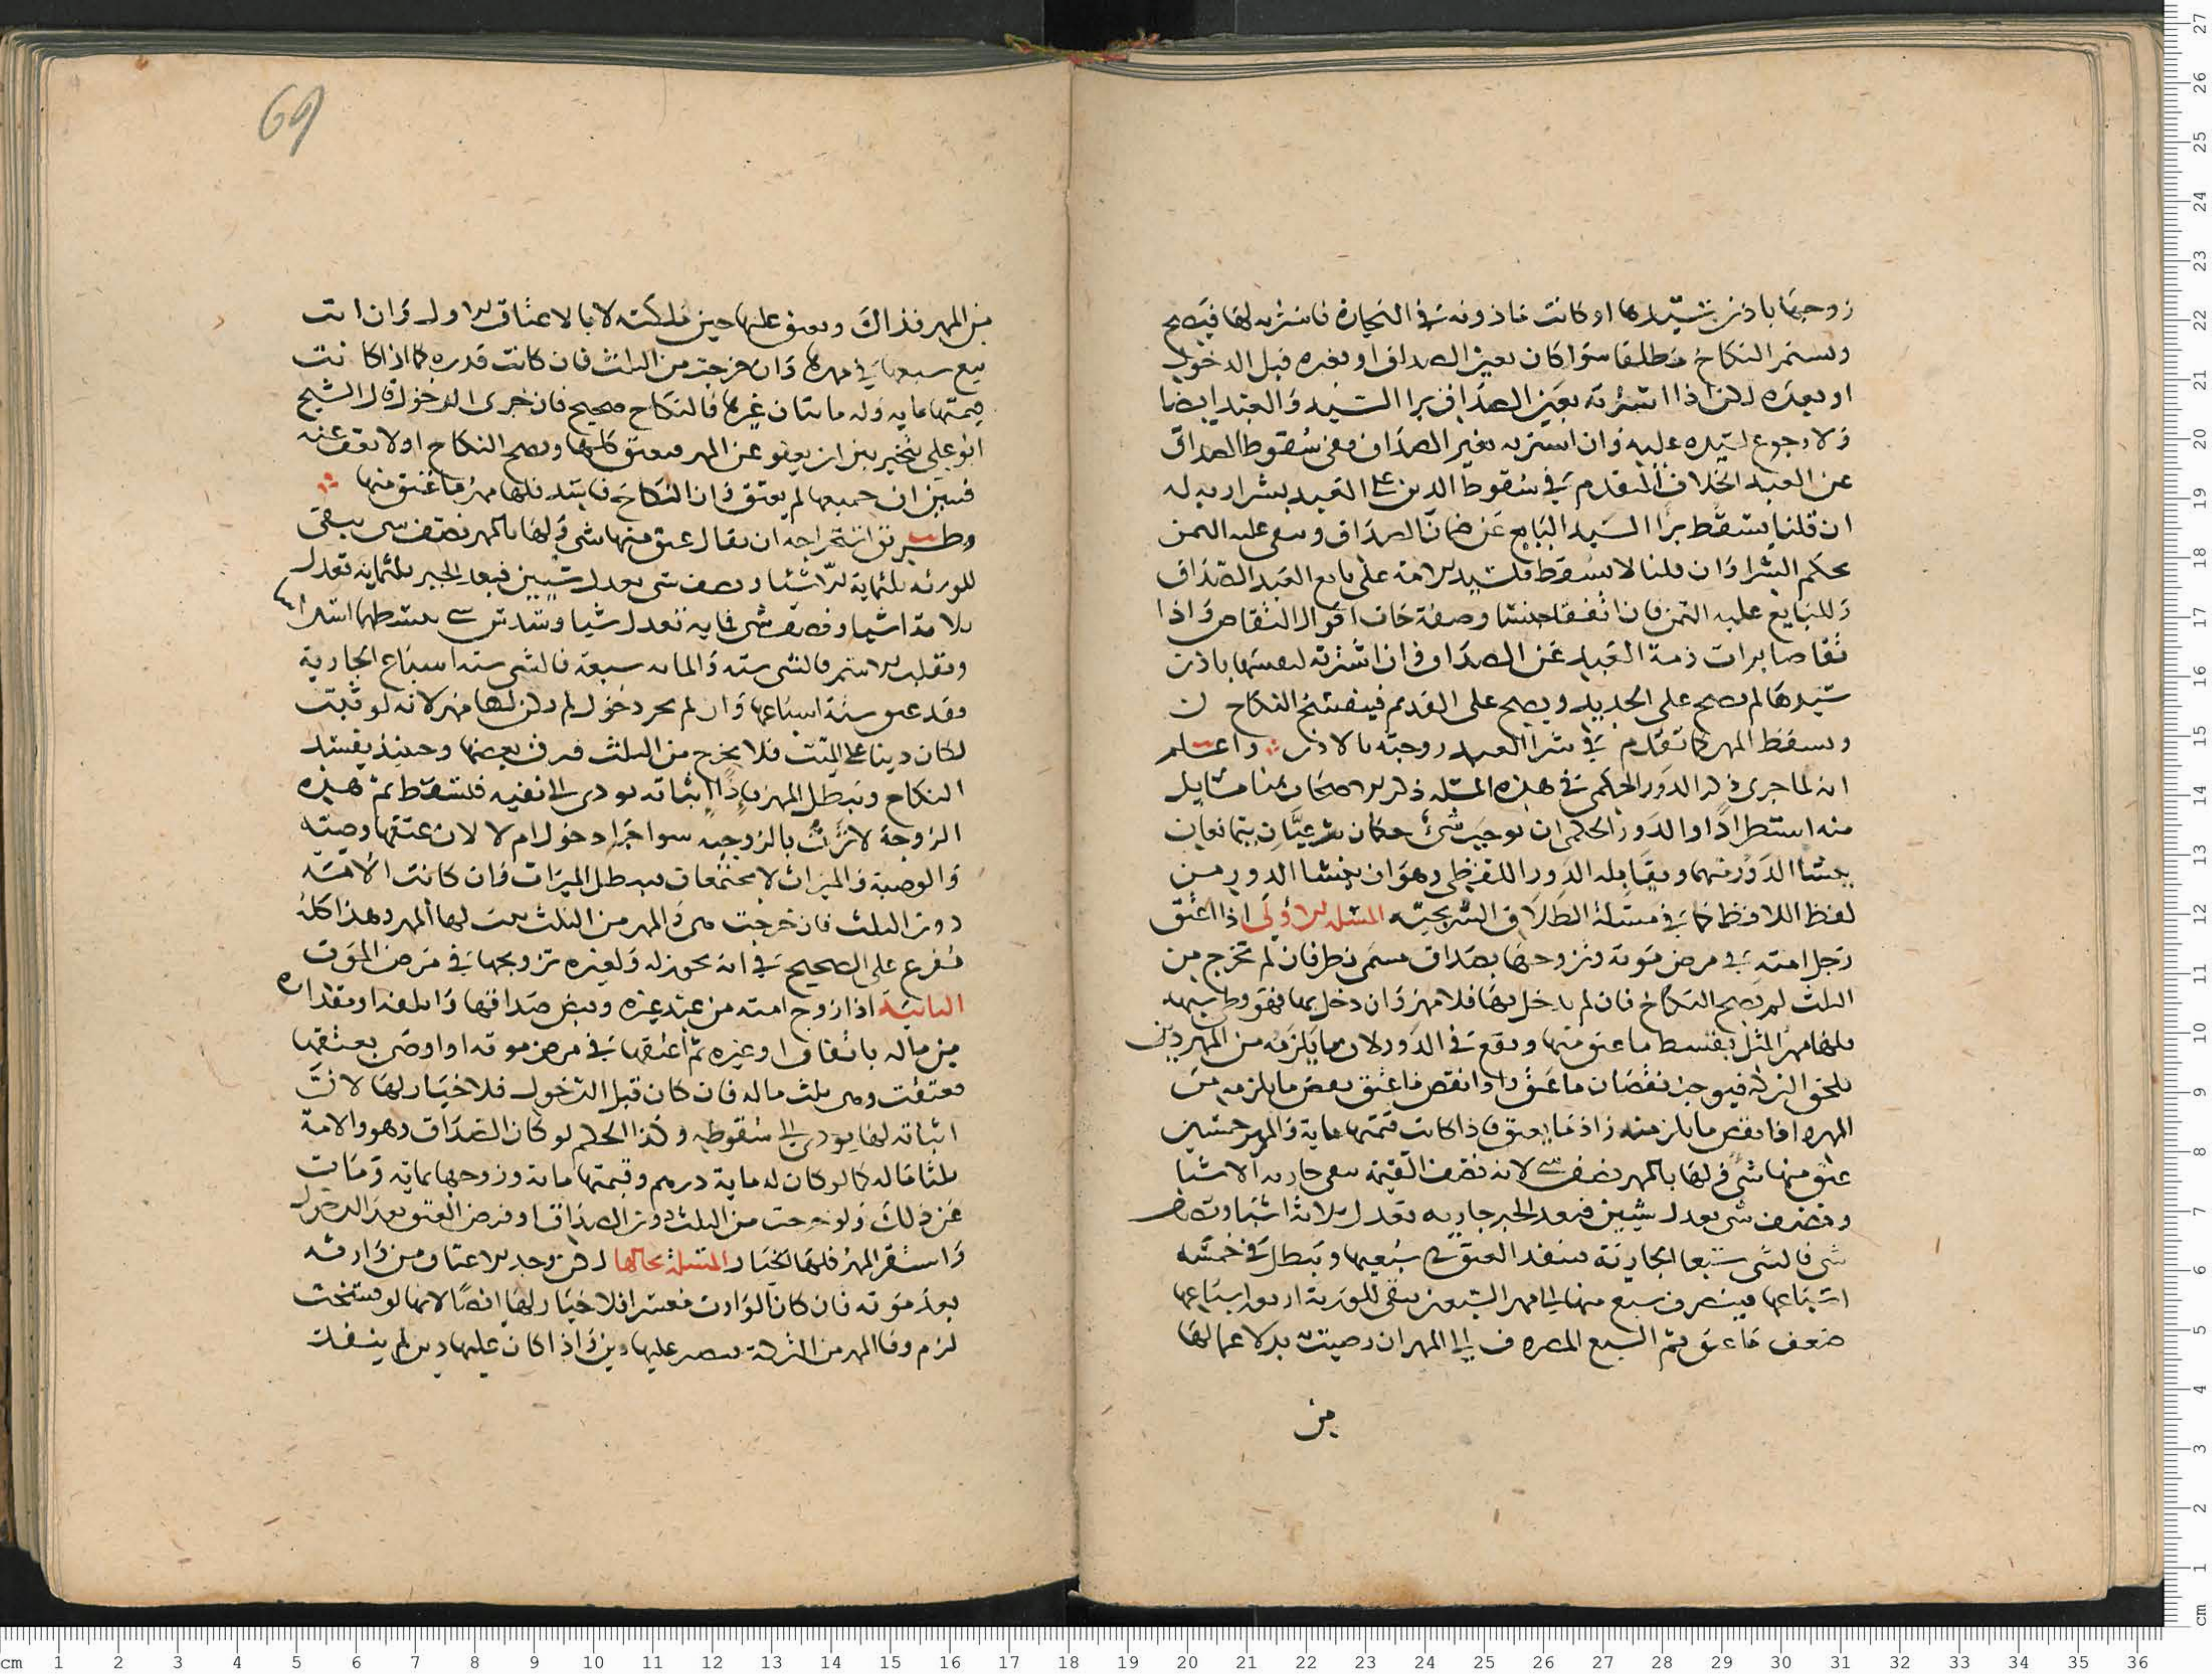 زوجها باذن سيدها او كانت ماذونه في التجارة فاشتريه لها فيصح
ويستمر النكاح مطلقا سوا كان بعين الصداق او بغيره قبل الدخول
او بعده لكن اذا اشترته بعين الصداق برا السيد والعبد ايضا
ولا رجوع لسيده عليه وان اشتريه بغير الصداق ففى سقوط الصداق
عن العبد الخلاف المتقدم في سقوط الدين على العبد بشرا ربه له
ان قلنا يسقط برا السيد البايع عن ضمان الصداق وبقى عليه الثمن
بحكم الشرا وان قلنا لا يسقط فلسيد الامة على بايع العبد الصداق
وللبايع عليه الثمن فان اتفقا جنسا وصفة جات اقوال التقاص واذا
تقاصا برات ذمة العبد عن الصداق وان اشترته لنفسها باذن
سيدها لم يصح على الجديد ويصح على القديم فينفسخ النكاح
ويسقط المهر كما تقدم في شرا العبد زوجته بالاذن واعلم
انه لما جرى ذكر الدور الحكمى في هذه المسله ذكر الاصحاب هنا مسايل
منه استطرادا والدور الحكمى ان يوجب شئ حكمان شرعيان يتمانعان
ينشا الدور منهما ويقابله الدور اللفظى وهو ان ينشا الدور من
لفظ اللافظ كما في مسئلة الطلاق السريجيه المسله الاولى اذا اعتق
رجل امته في مرض موته وتزوجها بصداق مسمى نظر فان لم تخرج من
الثلث لم يصح النكاح فان لم يدخل بها فلا مهر وان دخل بها فهو وطى شبهه
فلها مهر المثل بقسط ما عتق منها ويقع في الدور لان ما يلزمه من المهر دين
يلحق التركه فيوجب نقصان ما عتق واذا نقص ما عتق نقص ما يلزمه من
المهر واذا نقص ما يلزمه زاد ما يعتق فاذا كانت قيمتها ماية والمهر خمسين
عتق منها شئ ولها بالمهر نصف شى لانه نصف القيمة يبقى جاريه الا شيا
ونصف شى يعدل شيين فبعد الجبر جاريه تعدل ثلاثة اشيا ونصف
شى فالشى سبعا الجارية فينفذ العتق في سبعيها ويبطل في خمسه
اسباعها فينصرف سبع منها الى مهر السبعين يبقى للورثة اربعه اسباعها
ضعف ما عتق ثم السبع المصروف الى المهر ان رضيت بدلا عما لها
من
69
من المهر فذاك ويعتق عليها حين ملكته لا بالاعتاق الاول وان ابت
بيع سبعها في مهرها وان خرجت من الثلث فان كانت قدره كما اذا كانت
قيمتها مايه وله مايتان غيرها فالنكاح صحيح فان جرى الدخول قال الشيخ
ابو على تخير بين ان يعفو عن المهر فيعتق كلها ويصح النكاح او لا يعف عنه
فتبين ان جميعها لم يعتق وان النكاح فاسد فلها مهر ما عتق منها
وطريق استخراجه ان يقال عتق منها شى ولها بالمهر نصف شى يبقى
للورثه ثلثماية الا شيا ونصف شى يعدل شيين فبعد الجبر ثلثمايه تعدل
ثلاثة اشيا ونصف شى فمايه تعدل شيا وسدس شى
وتقلب الاسم فالشى سته والمايه سبعة فالشى سته اسباع الجارية
فقد عتق ستة اسباعها وان لم يجر دخول لم يكن لها مهر لانه لو ثبت
لكان دينا على الميت فلا يخرج من الثلث فيرق بعضها وحينئذ يفسد
النكاح ويبطل المهر فاذا اثباته يودى الى نفيه فلتسقط ثم هذه
الزوجة لا ترث بالزوجيه سوا جرا دخول ام لا لان عتقها وصيته
والوصية والميراث لا يجتمعان فيبطل الميراث وان كانت الامه
دون الثلث فان خرجت هى والمهر من الثلث ثبت لها المهر وهذا كله
مفرع على الصحيح في انه يجوز له ولغيره تزوجها في مرض الموت
الثانيه اذا زوج امته من عبد غيره وقبض صداقها واتلفه او مقداره
من ماله بانفاق او غيره ثم اعتقها في مرض موته او اوصى بعتقها
فعتقت وهى ثلث ماله فان كان قبل الدخول فلا خيار لها لان
اثباته لها يودى الى سقوطه وكذا الحكم لو كان الصداق وهو والامة
ثلثا ماله كما لو كان له ماية درهم وقيمتها ماية وزوجها بمايه ومات
عن ذلك ولو خرجت من الثلث دون الصداق او فرض العتق بعد الدخول
واستقر المهر فلها الخيار المسئلة بحالها لكن وجد الاعتاق من وارثه
بعد موته فان كان الوارث معسرا فلا خيار لها ايضا لانها لو فسخت
لزم وفا المهر من التركة فيصير عليها دين واذا كان عليها دين لم ينفذ